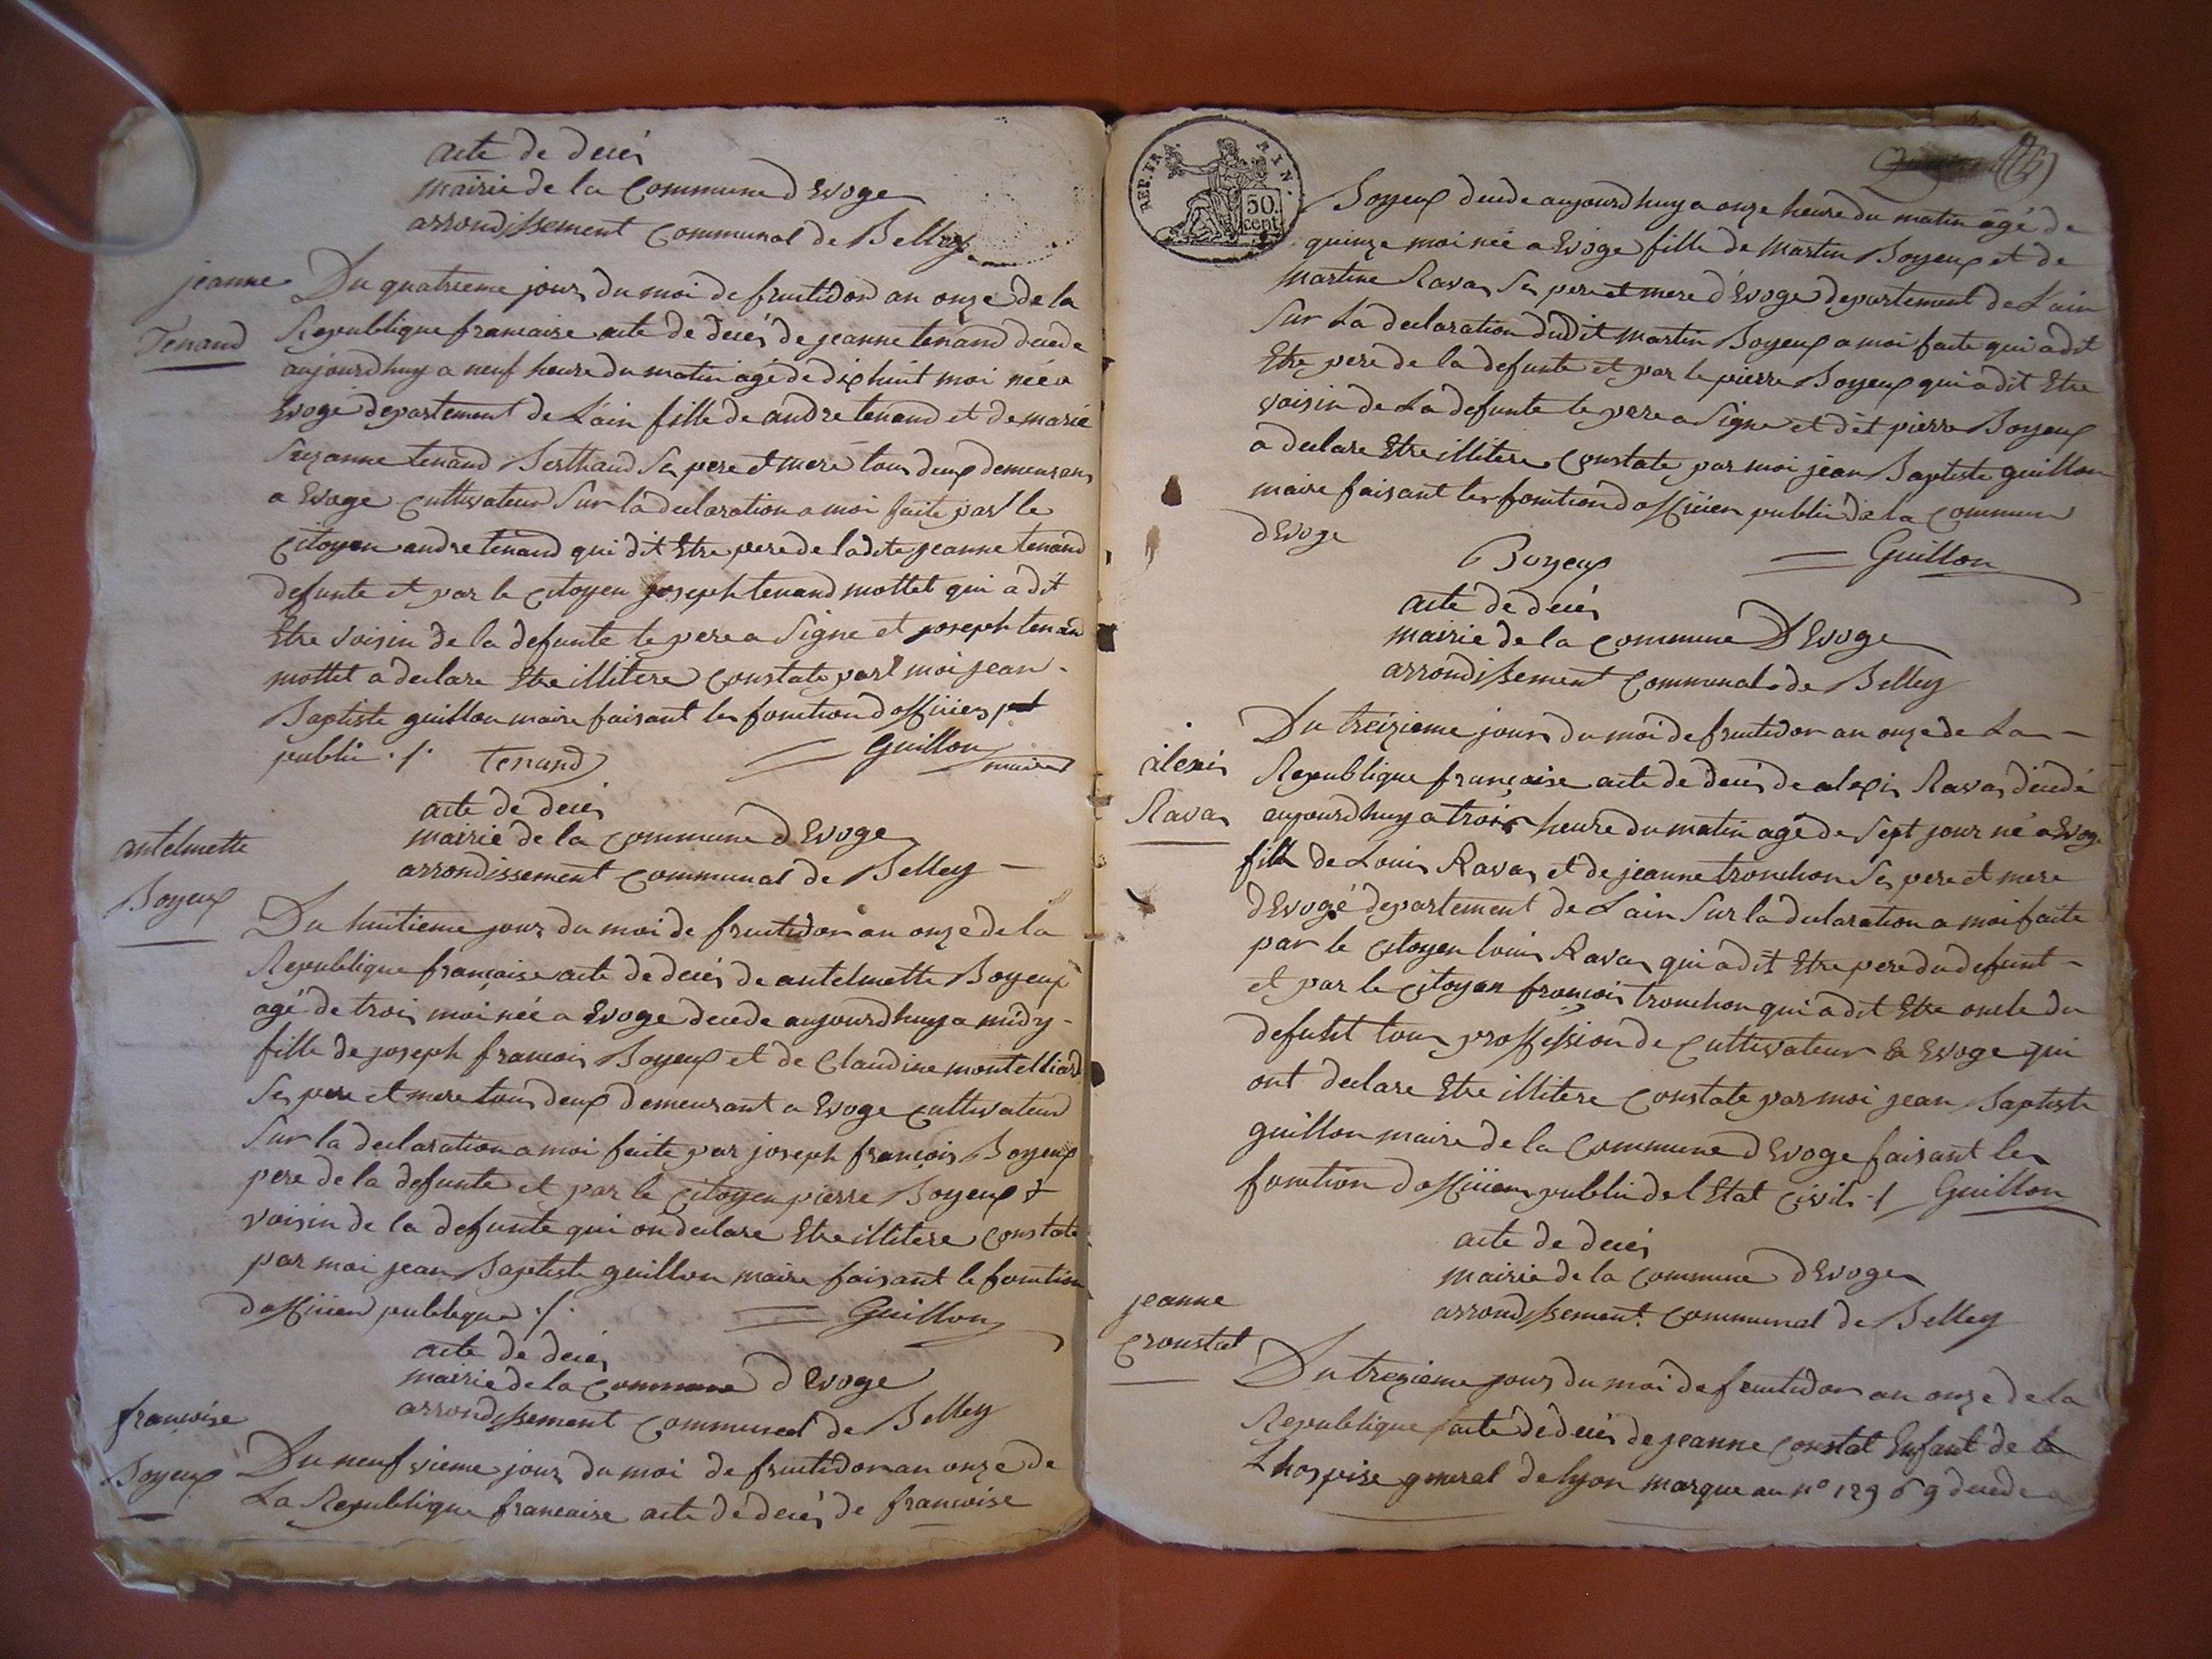 acte de decés
mairie de la Commune d Evoge
arrondissement Communal de Belley
jeanne
Tenand
Du quatrieme jour du moi de fructidor an onze de la
Republique francaise acte de decés de jeanne tenand decede
aujourdhuy a neuf heure du matin agé de dix huit moi née a
Evoge departement de L'ain fille de andre tenand et de marie
Suzanne tenand Berthaud Ses pere et mere tous deux demeurans
a Evoge Cultivateur Sur la declaration a moi faite par le
Citoyen andre tenand qui dit Etre pere de ladite jeanne tenand
defunte et par le Citoyen joseph tenand mottet qui a dit
Etre voisin de la defunte le pere a Signe et joseph tenand
mottet a declare Etre illitere Constate par moi jean
Baptiste guillon maire faisant les fonction d officier
public ./. Tenand Guillon maire
acte de decés
mairie de la Commune d Evoge
arrondissement Communal de Belley
antelmette
Boyeux
Du huitieme jour du moi de fructidor an onze de la
Republique francaise acte de decés de antelmette Boyeux
agé de trois moi née a Evoge decede aujourdhuy a midy
fille de joseph francois Boyeux et de Claudine montelliard
Ses pere et mere tous deux demeurant a Evoge cultivateur
Sur la declaration a moi faite par joseph francois Boyeux
pere de la defunte et par le Citoyen pierre Boyeux
voisin de la defunte qui on declare Etre illitere Constate
par moi jean Baptiste guillon maire faisant le fonction
d officier publique ./. Guillon
acte de decés
mairie de la Commune d Evoge
arrondissement Communal de Belley
francoise
Boyeux
Du neufvieme jour du moi de fructidor an onze de
La Republique francaise acte de decés de francoise
REP. FRA.
50.
cent.
Boyeux decede aujourdhuy a onze heure du matin agé de
quinze moi née a Evoge fille de Martin Boyeux et de
Martine Ravas Ses pere et mere d'Evoge departement de L'ain
Sur La declaration dudit Martin Boyeux a moi faite qui a dit
Etre pere de la defunte et par le pierre Boyeux qui a dit Etre
voisin de La defunte le pere a Signe et dit pierre Boyeux
a declare Etre illitere Constate par moi jean Baptiste guillon
maire faisant les fonction d officier public de la Commune
d Evoge
Boyeux Guillon
acte de decés
mairie de la Commune D Evoge
arrondissement Communal de Belley
alexis
Ravas
Du treizieme jour du moi de fructidor an onze de La
Republique françoise acte de decés de alexis Ravas decedé
aujourdhuy a trois heure du matin agé de Sept jour né a Evoge
fils de Louis Ravas et de jeanne tronchon Ses pere et mere
d Evogé departement de L ain Sur la declaration a moi faite
par le Citoyen louis Ravas qui a dit Etre pere du defunt
et par le Citoyen françois tronchon qui a dit Etre oncle du
defunt tous proffession de Cultivateur a Evoge qui
ont declare Etre illitere Constate par moi jean Baptiste
guillon maire de la Commune d Evoge faisant les
fonction d officier public de l Etat Civil ./ Guillon
acte de decés
mairie de la Commune d Evoge
arrondissement Communal de Belley
jeanne
Croustat
Du trezieme jour du moi de fructidor an onze de la
Republique acte de decés de jeanne Constat Enfant de
L hospise general de lyon marque au n° 12969 decede a